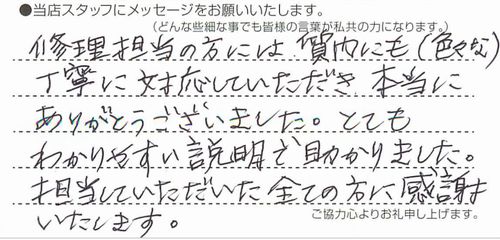 ●当店スタッフにメッセージをお願いいたします。
(どんな些細な事でも皆様の言葉が私共の力になります。)
修理担当の方には質内にも(色々な)
丁寧に対応していただき本当に
ありがとうございました。とても
わかりやすい説明で助かりました。
担当していただいた全ての方に感謝
いたします。
ご協力心よりお礼申し上げます。